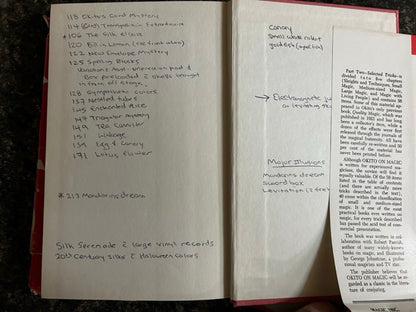 113 Okito's Card Mystery
114 (Card) Transposition Extraordinaire
*106 The Silk Elixir
120 Ball in Lemon (
122 New Envelope Mystery
125 Spelling Blocks
Variations: Ask impression pad &
Box preloaded & shells brought
in from off stage.
128 Sympathetic colors
137 Nestled tubes
145 Enchanted Rice
147 Triangular mystery
149 Tea Canister
151 Linkage
159 Egg & Canary
171 Lotus Flower
*213 Mandarins dream
Silk Serenade & large vinyl records
20th Century silks & Halloween colors
Canary
Small wave rabbit
goldfish (
→ Electromagnetic
or levitating
Major Illusions
Mandarins dream
Sword box
Levitation (
Part Two—Selected Tricks—is
divided into five chapters
(Sleights and Techniques, Small
Magic, Medium-sized Magic,
Large Magic, and Magic with
Living Props), and contains 38
items. Some of this material ap-
peared in Okito's earlier book,
Quality Magic, which was
published in 1921 and has long
been a collector's item, while a
dozen of the effects were first
released through the journals of
the magical fraternity. All have
been carefully re-written and 50
per cent of the material have
never been printed before.
Although OKITO ON MAGIC is
written for experienced ma-
gicians, the novice will find it
equally valuable. Of the 50 items
listed in the table of contents
(and there are actually more
tricks described in the text),
40 come within the classification
of small and medium-sized
magic. It is one of the most
practical books ever written on
magic, for every trick described
has passed the acid test of com-
mercial presentation.
The book was written in col-
laboration with Robert Parrish,
author of many widely-known
books on magic, and illustrated
by George Johnstone, a profes-
sional magician and TV star.
The publisher believes that
OKITO ON MAGIC will be re-
garded as a classic in the litera-
ture of conjuring.